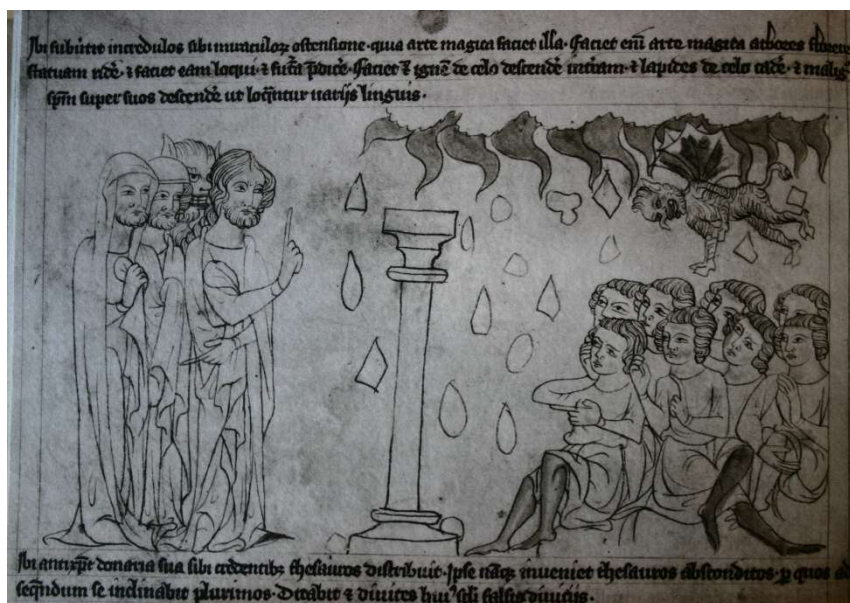 Ibi subūtit incredulos sibi miraculoꝝ ostensione. quia arte magica faciet illa. Faciet eni arte magica arbores florere
statuam ridē. ⁊ faciet eam loqui. ⁊ futa p̄dicē. Faciet ⁊ ignē de celo descendē in t̄ram. ⁊ lapides de celo cadē. ⁊ malig
sp̄m super suos descendē ut loq̄ntur uarijs linguis.
Ibi antixp̄c donaria sua sibi credentibꝫ thesauros distribuit. Ipse nāqꝫ inueniet thesauros absconditos. ꝑ quos ad
seq̄ndum se inclinabit plurimos. Ditabit ⁊ diuites hui' sc̄li falsis diuicijs.